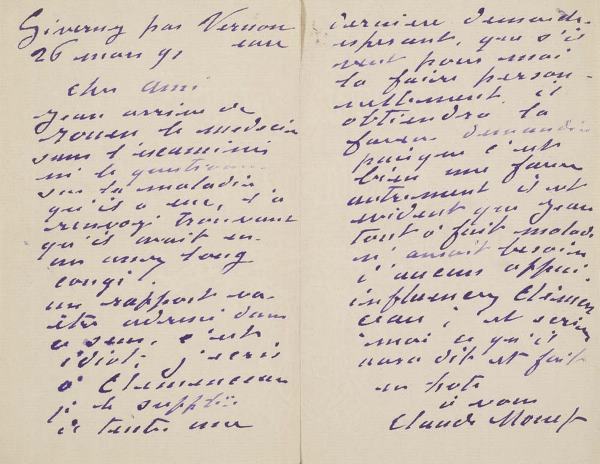 Giverny par Vernon
eure
26 mars 91
cher ami
Jean arrive de
rouen le medecin
sans l'examiner
ni le questionner
sur la maladie
qu'il a eue, l'a
renvoyé trouvant
qu'il avait eu
un assez long
congé.
un rapport va
être adressé dans
ce sens, c'est
idiot, j'écris
à Clemenceau
je le supplie
de tenter une
dernière demarche
esperant, que s'il
veut pour moi
la faire person-
nellement il
obtiendra la
faveur demandée
puisque c'est
bien une faveur
autrement il est
evident que Jean
tout à fait malade
n'aurait besoin
d'aucun appui.
influencez Clemen
ceau, et ecrivez
moi ce qu'il
aura dit et fait
en hate
à vous
Claude Monet